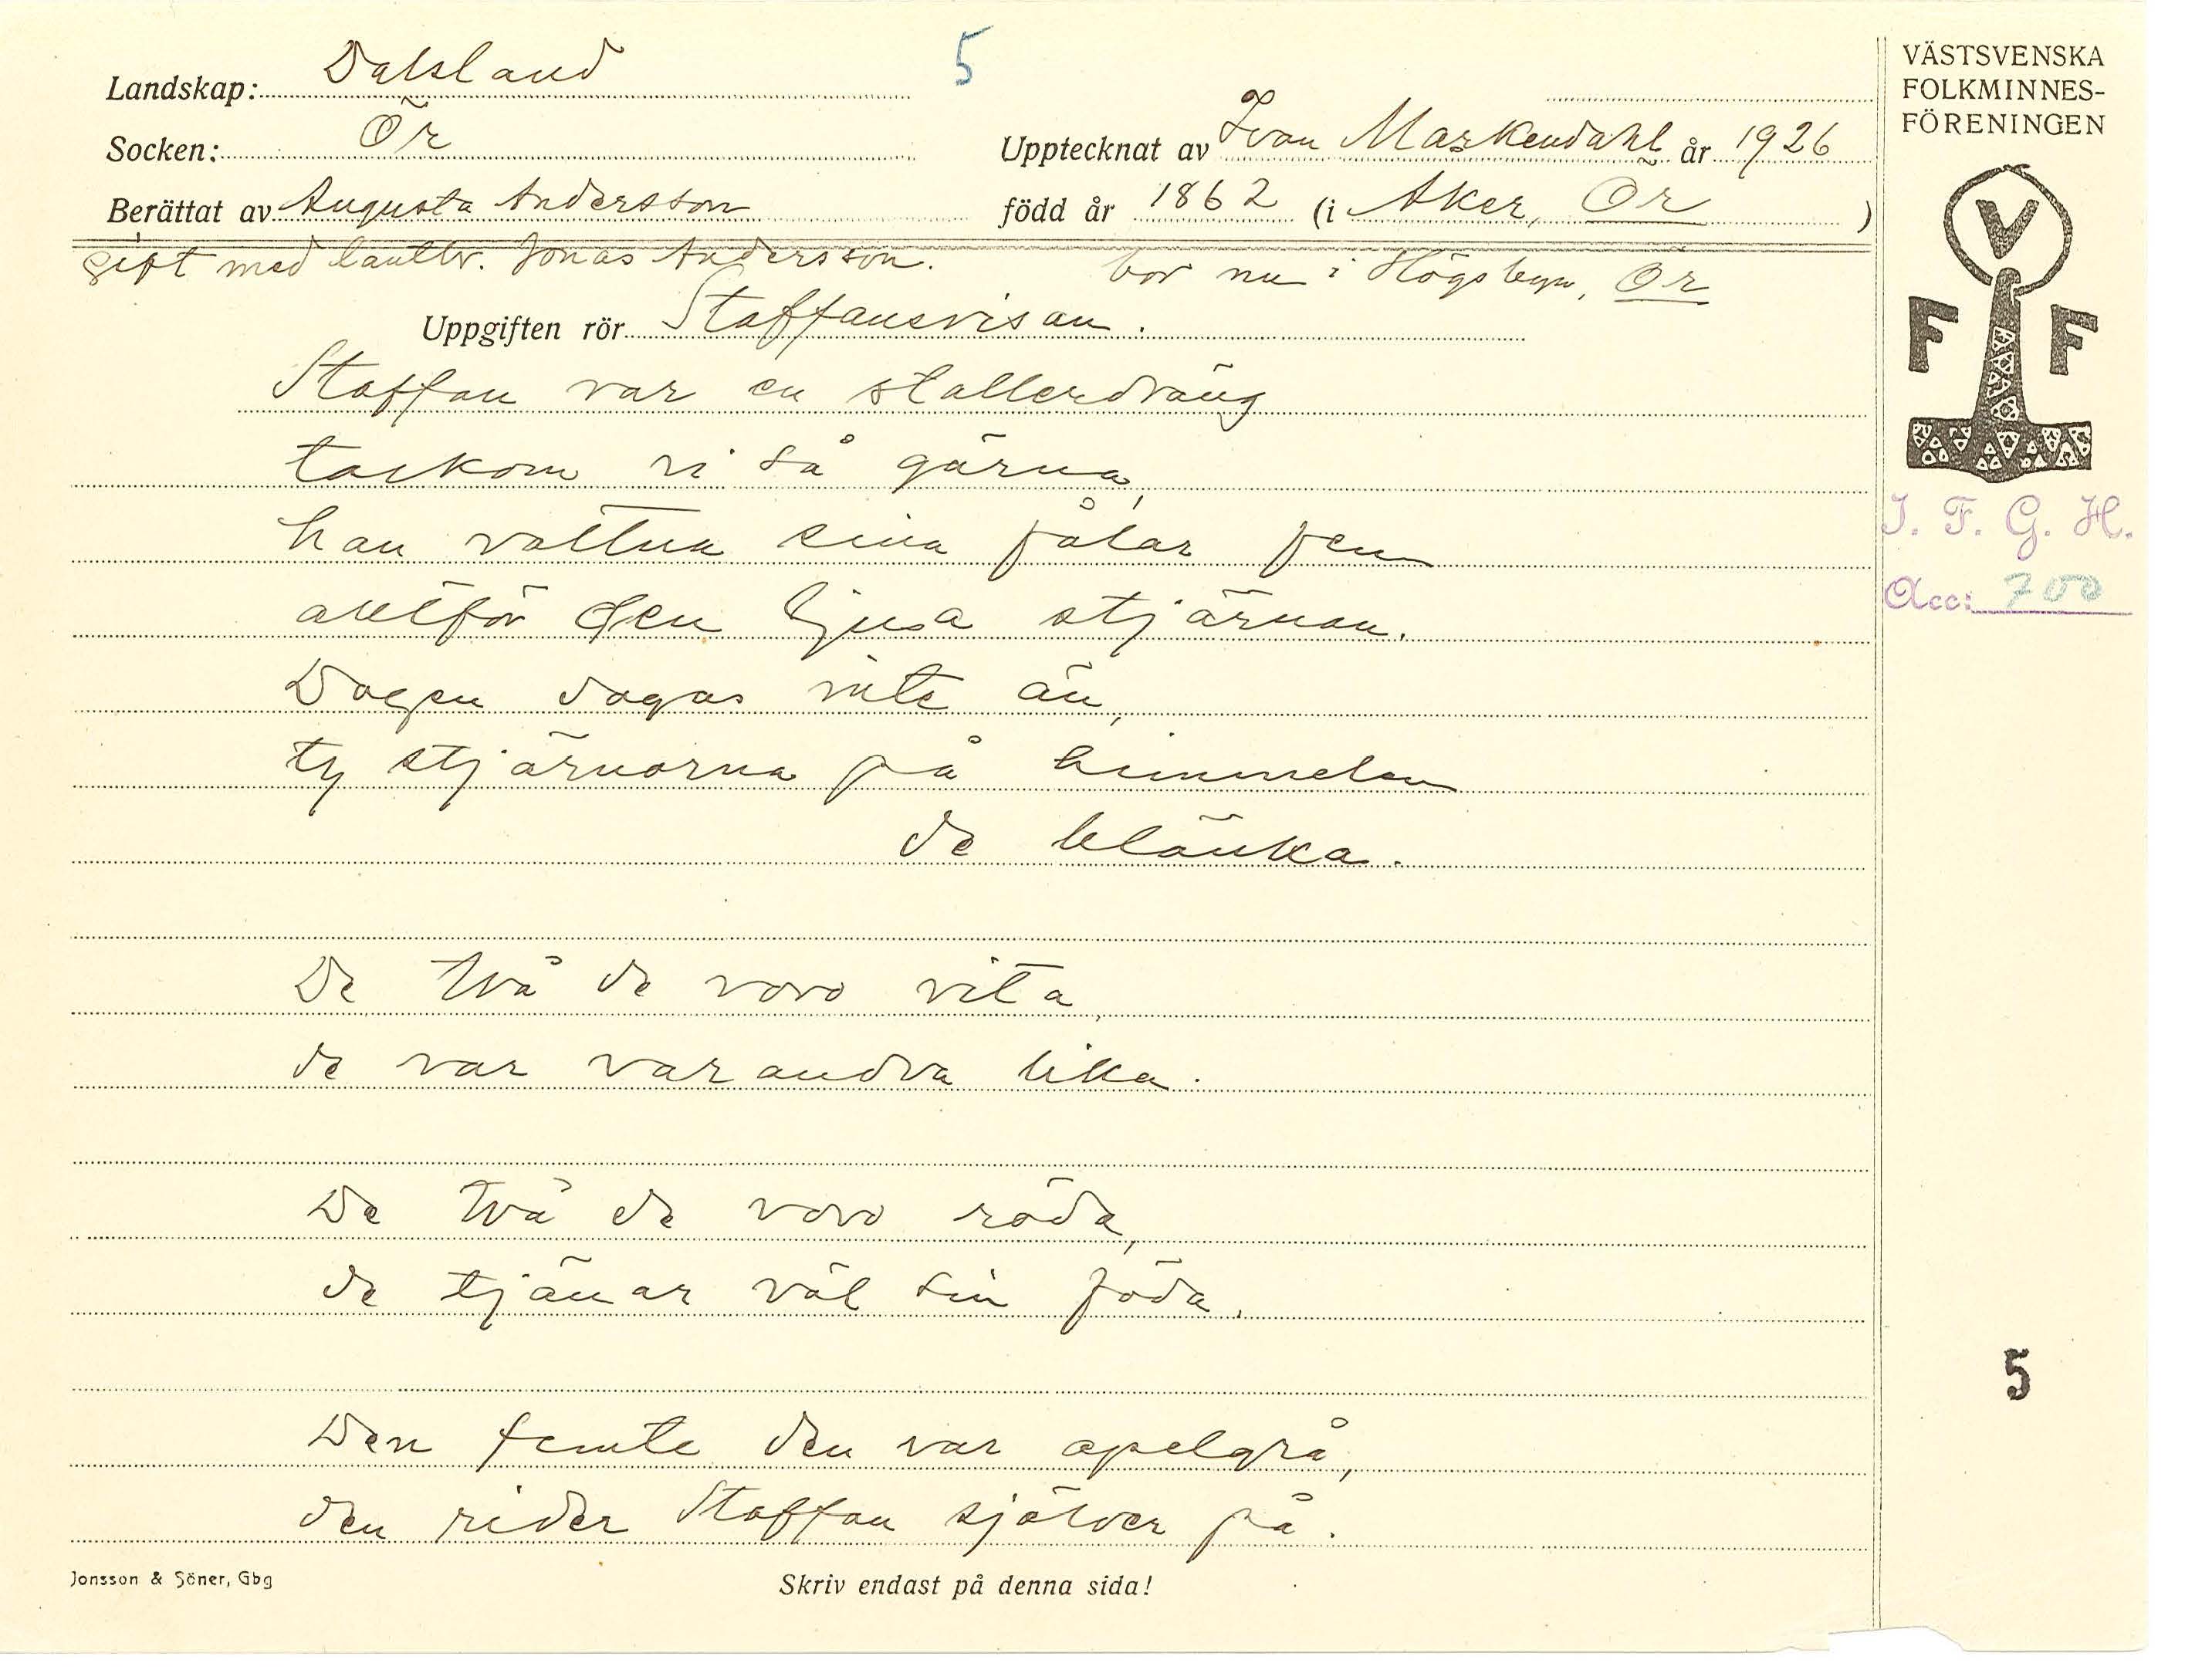 Landskap: Dalsland
5
VÄSTSVENSKA
FOLKMINNES-
FÖRENINGEN
Socken: Ör
Upptecknat av Ivan Markendahl år 1926
Berättat av Augusta Andersson
född år 1862 (i Åker, Ör)
gift med lantbr. Jonas Andersson.
bor nu i Högsbyn, Ör
V
F F
Uppgiften rör Staffansvisan.
Staffan var en stallerdräng
tackom vi så gärna,
han vattna sina fålar fem
alltför den ljusa stjärnan.
I. F. G. H.
Acc: 700
Dagen dagas inte än,
ty stjärnorna på himmelen
de blänka.
De två de voro vita,
de var varandra lika.
De två de voro röda,
de tjänar väl sin föda.
5
Den femte den var apelgrå,
den rider Staffan själver på.
Jonsson & Söner, Gbg
Skriv endast på denna sida!